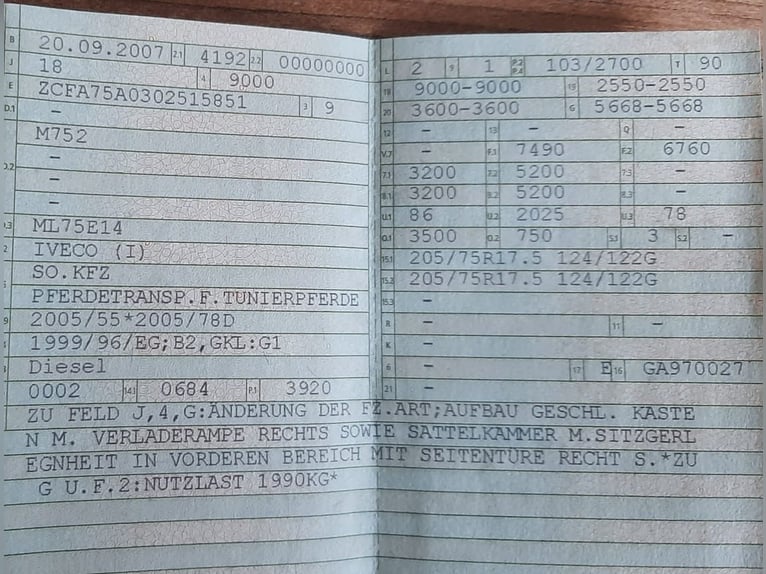 B 20.09.2007 2.1 4192 2.2 00000000
J 18 4 9000
E ZCFA75A0302515851 3 9
D.1 –
M752
D.2 –
–
–
D.3 ML75E14
2 IVECO (I)
SO.KFZ
5 PFERDETRANSP.F.TUNIERPFERDE
V.9 2005/55*2005/78D
1999/96/EG;B2,GKL:G1
Diesel
0002 14.1 0684 P.1 3920
L 2 9 1 P.2 P.4 103/2700 T 90
18 9000-9000 19 2550-2550
20 3600-3600 G 5668-5668
12 – 13 – Q –
V.7 – F.1 7490 F.2 6760
7.1 3200 7.2 5200 7.3 –
8.1 3200 8.2 5200 8.3 –
U.1 86 U.2 2025 U.3 78
O.1 3500 O.2 750 S.1 3 S.2 –
15.1 205/75R17.5 124/122G
15.2 205/75R17.5 124/122G
15.3 –
R – 11 –
K –
6 – 17 E 16 GA970027
21 –
ZU FELD J,4,G:ÄNDERUNG DER FZ.ART;AUFBAU GESCHL. KASTE
N M. VERLADERAMPE RECHTS SOWIE SATTELKAMMER M.SITZGERL
EGNHEIT IN VORDEREN BEREICH MIT SEITENTÜRE RECHT S.*ZU
G U.F.2:NUTZLAST 1990KG*